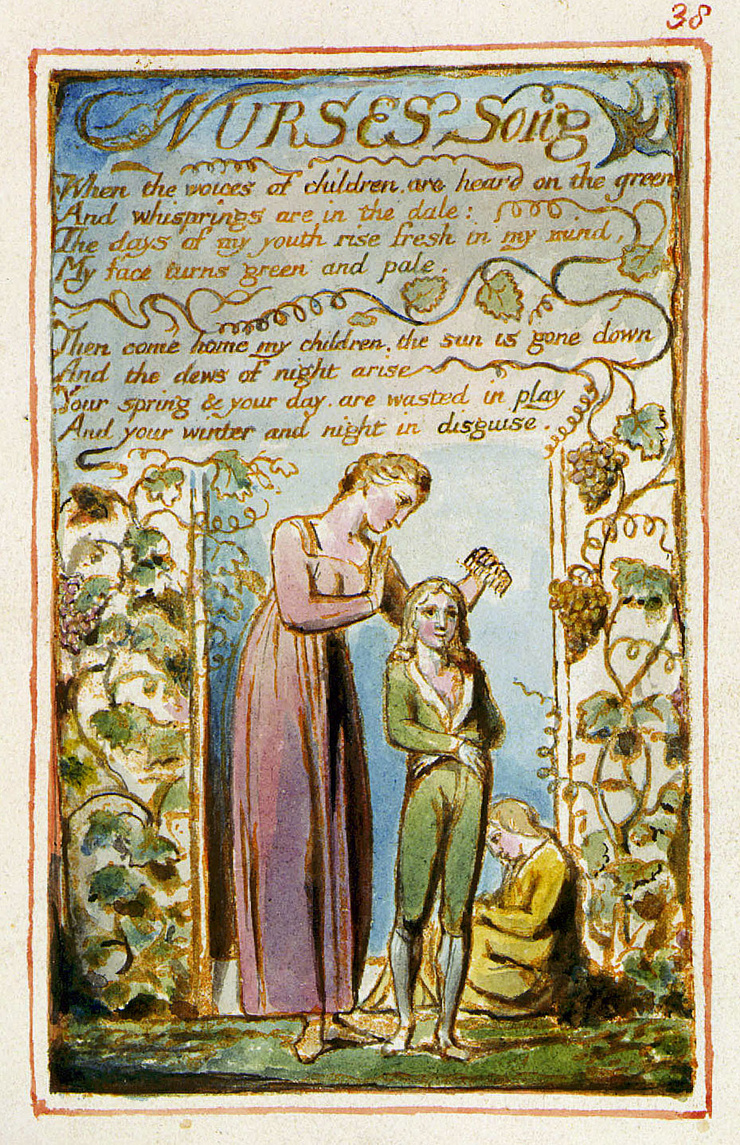 38
NURSES Song
When the voices of children. are heard on the green
And whisprings are in the dale:
The days of my youth rise fresh in my mind,
My face turns green and pale.
Then come home my children. the sun is gone down
And the dews of night arise
Your spring & your day. are wasted in play
And your winter and night in disguise.